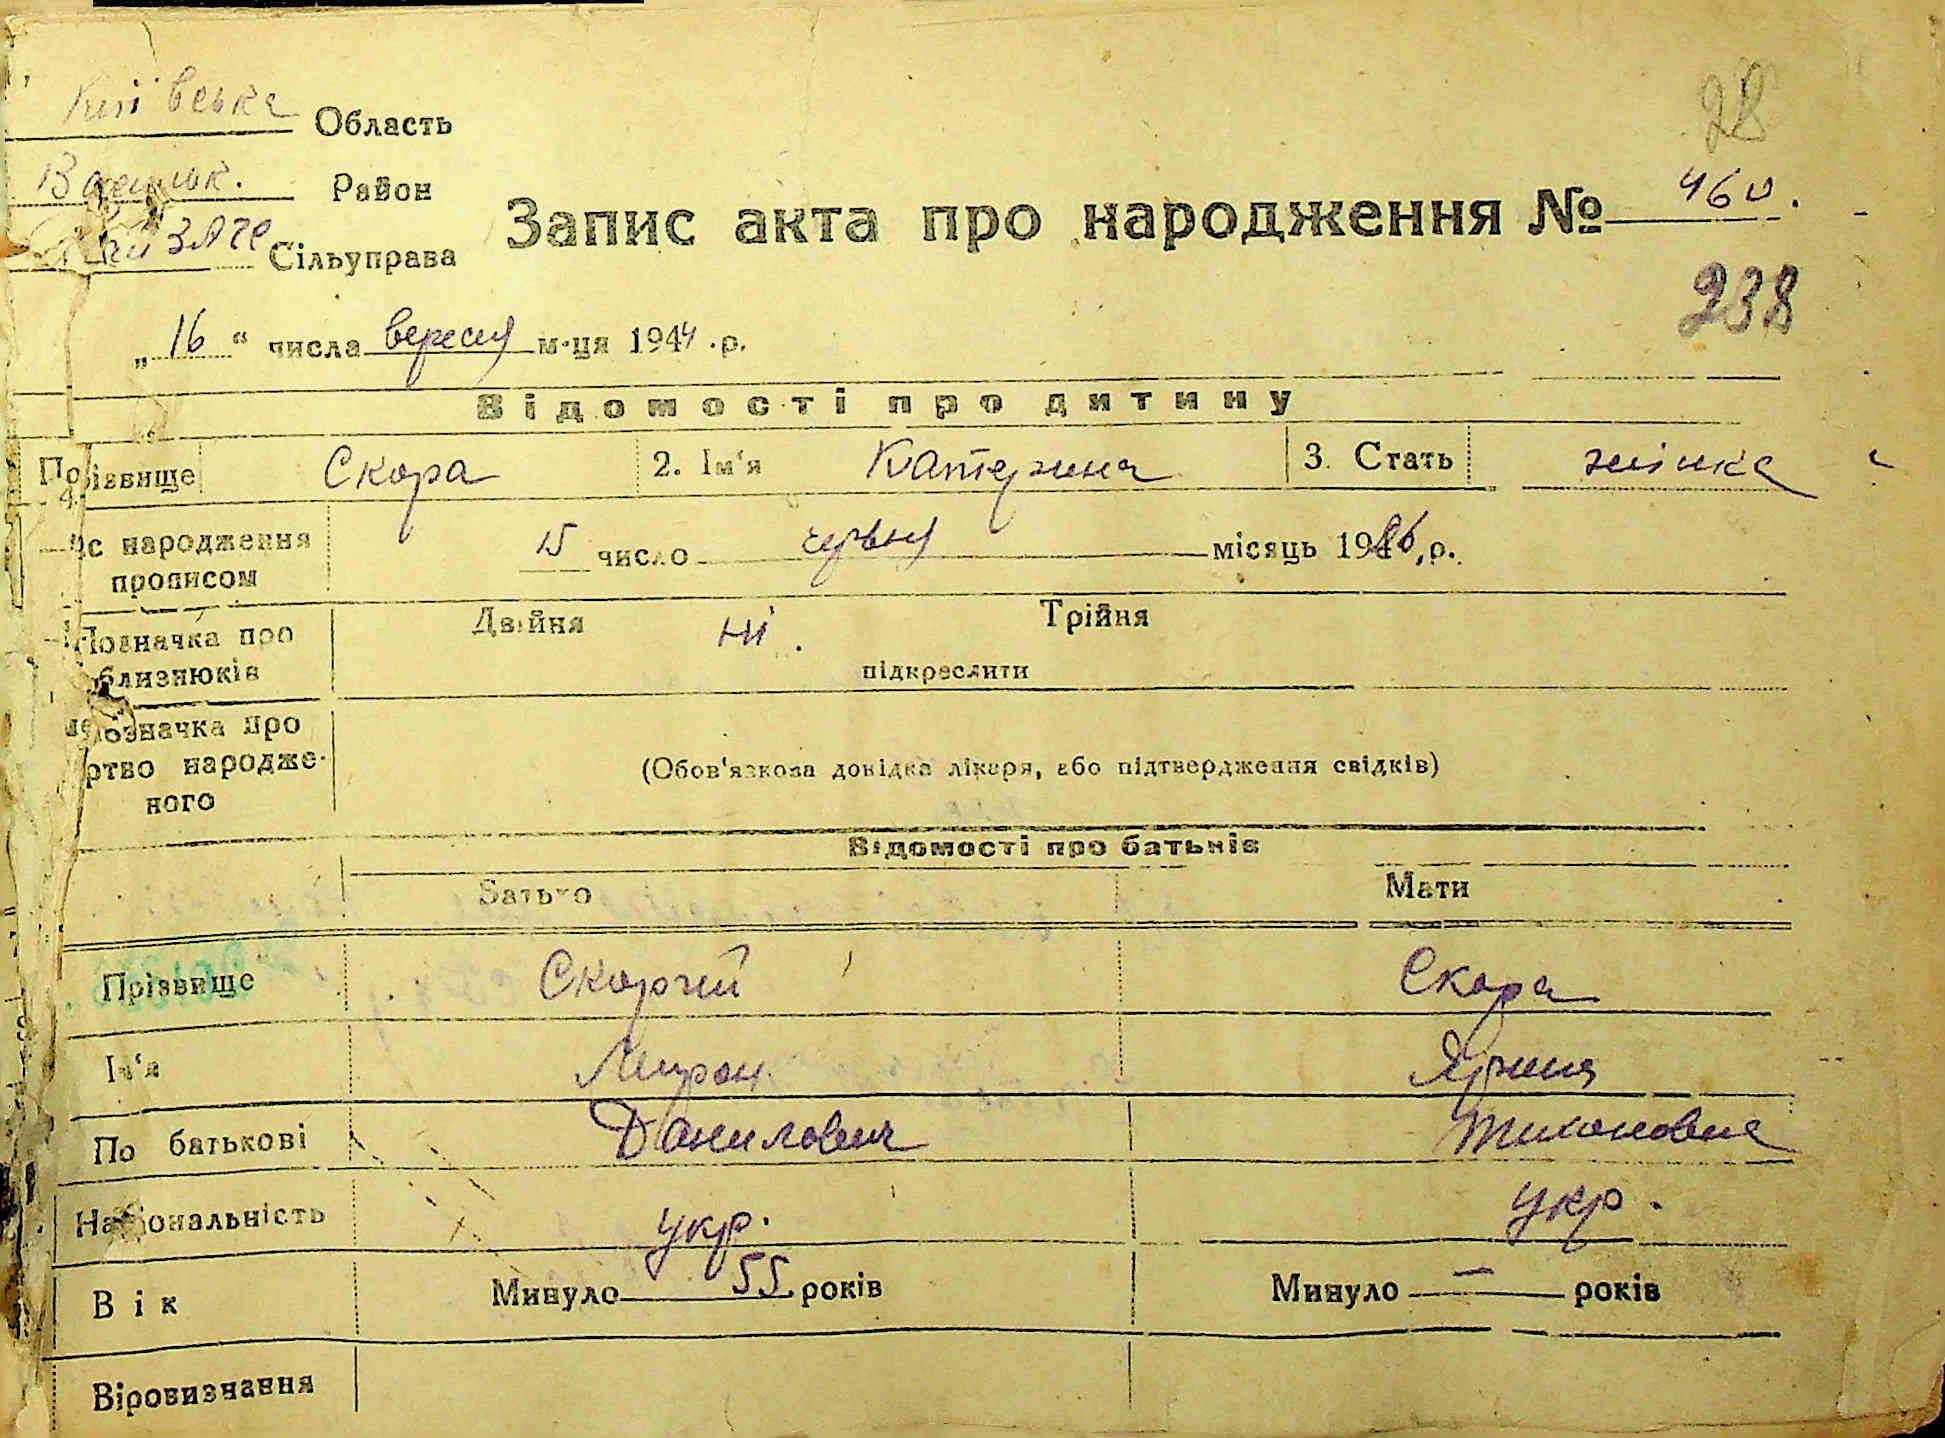 28
Київська Область
Васильк. Район
Сільуправа
Запис акта про народження № 460.
238
„ 16 “ числа вересня м-ця 1944 .р.
Відомості про дитину
Прізвище Скора 2. Ім'я Катерина 3. Стать жінка
народження прописом 15 число червня місяць 1926,р.
Позначка про близнюків Двійня ні. Трійня
підкреслити
Позначка про мертво народженого
(Обов'язкова довідка лікаря, або підтвердження свідків)
Відомості про батьків
Батько Мати
Прізвище Скорчий Скора
Ім'я Мирон. Ярина
По батькові Данилович Тихоновна
Національність укр. укр.
Вік Минуло 55. років Минуло — років
Віровизнання